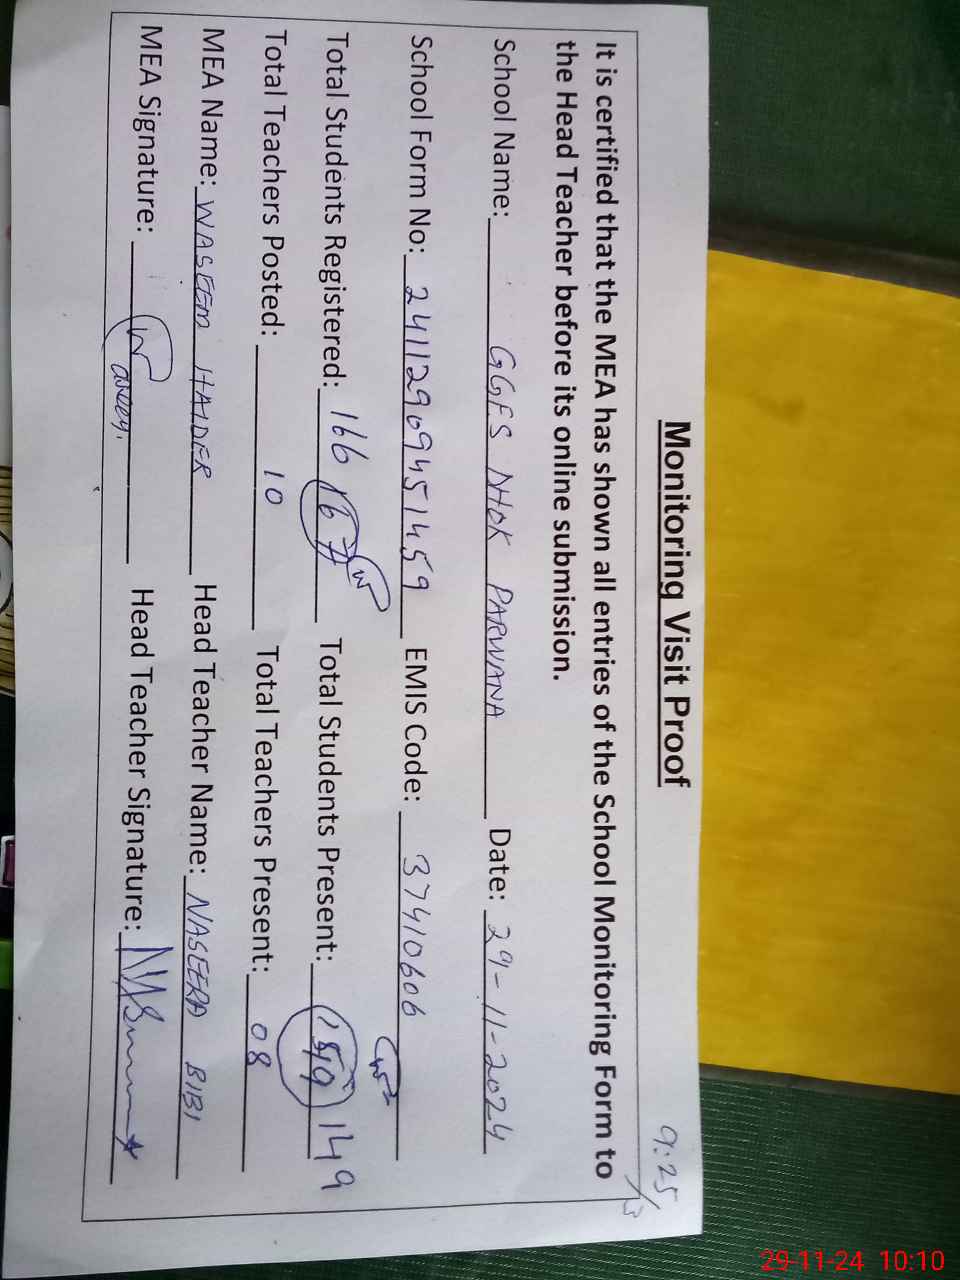 9:25
Monitoring Visit Proof
It is certified that the MEA has shown all entries of the School Monitoring Form to
the Head Teacher before its online submission.
School Name: GGES NHOK PARWANA Date: 29-11-2024
School Form No: 24112909451459 EMIS Code: 37410606
Total Students Registered: 166 167 Total Students Present: 149
Total Teachers Posted: 10 Total Teachers Present: 08
MEA Name: WASEEM HAIDER Head Teacher Name: NASEERA BIBI
MEA Signature: Head Teacher Signature:
29-11-24 10:10